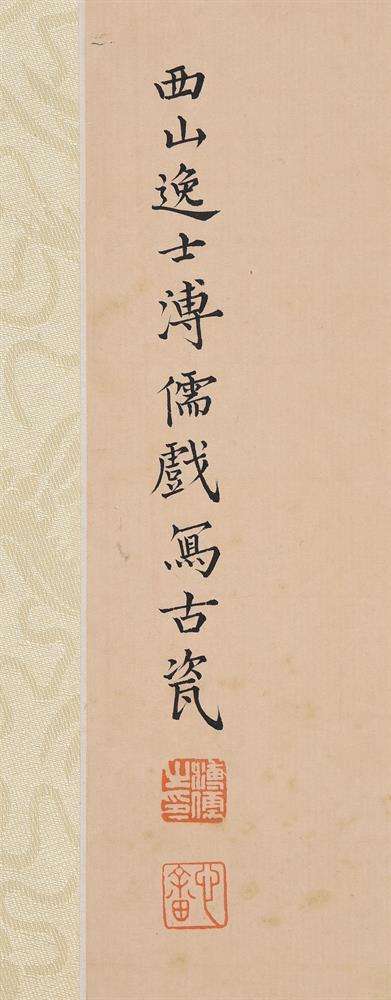 西山逸士溥儒戲寫古瓷
溥儒之印
心畬